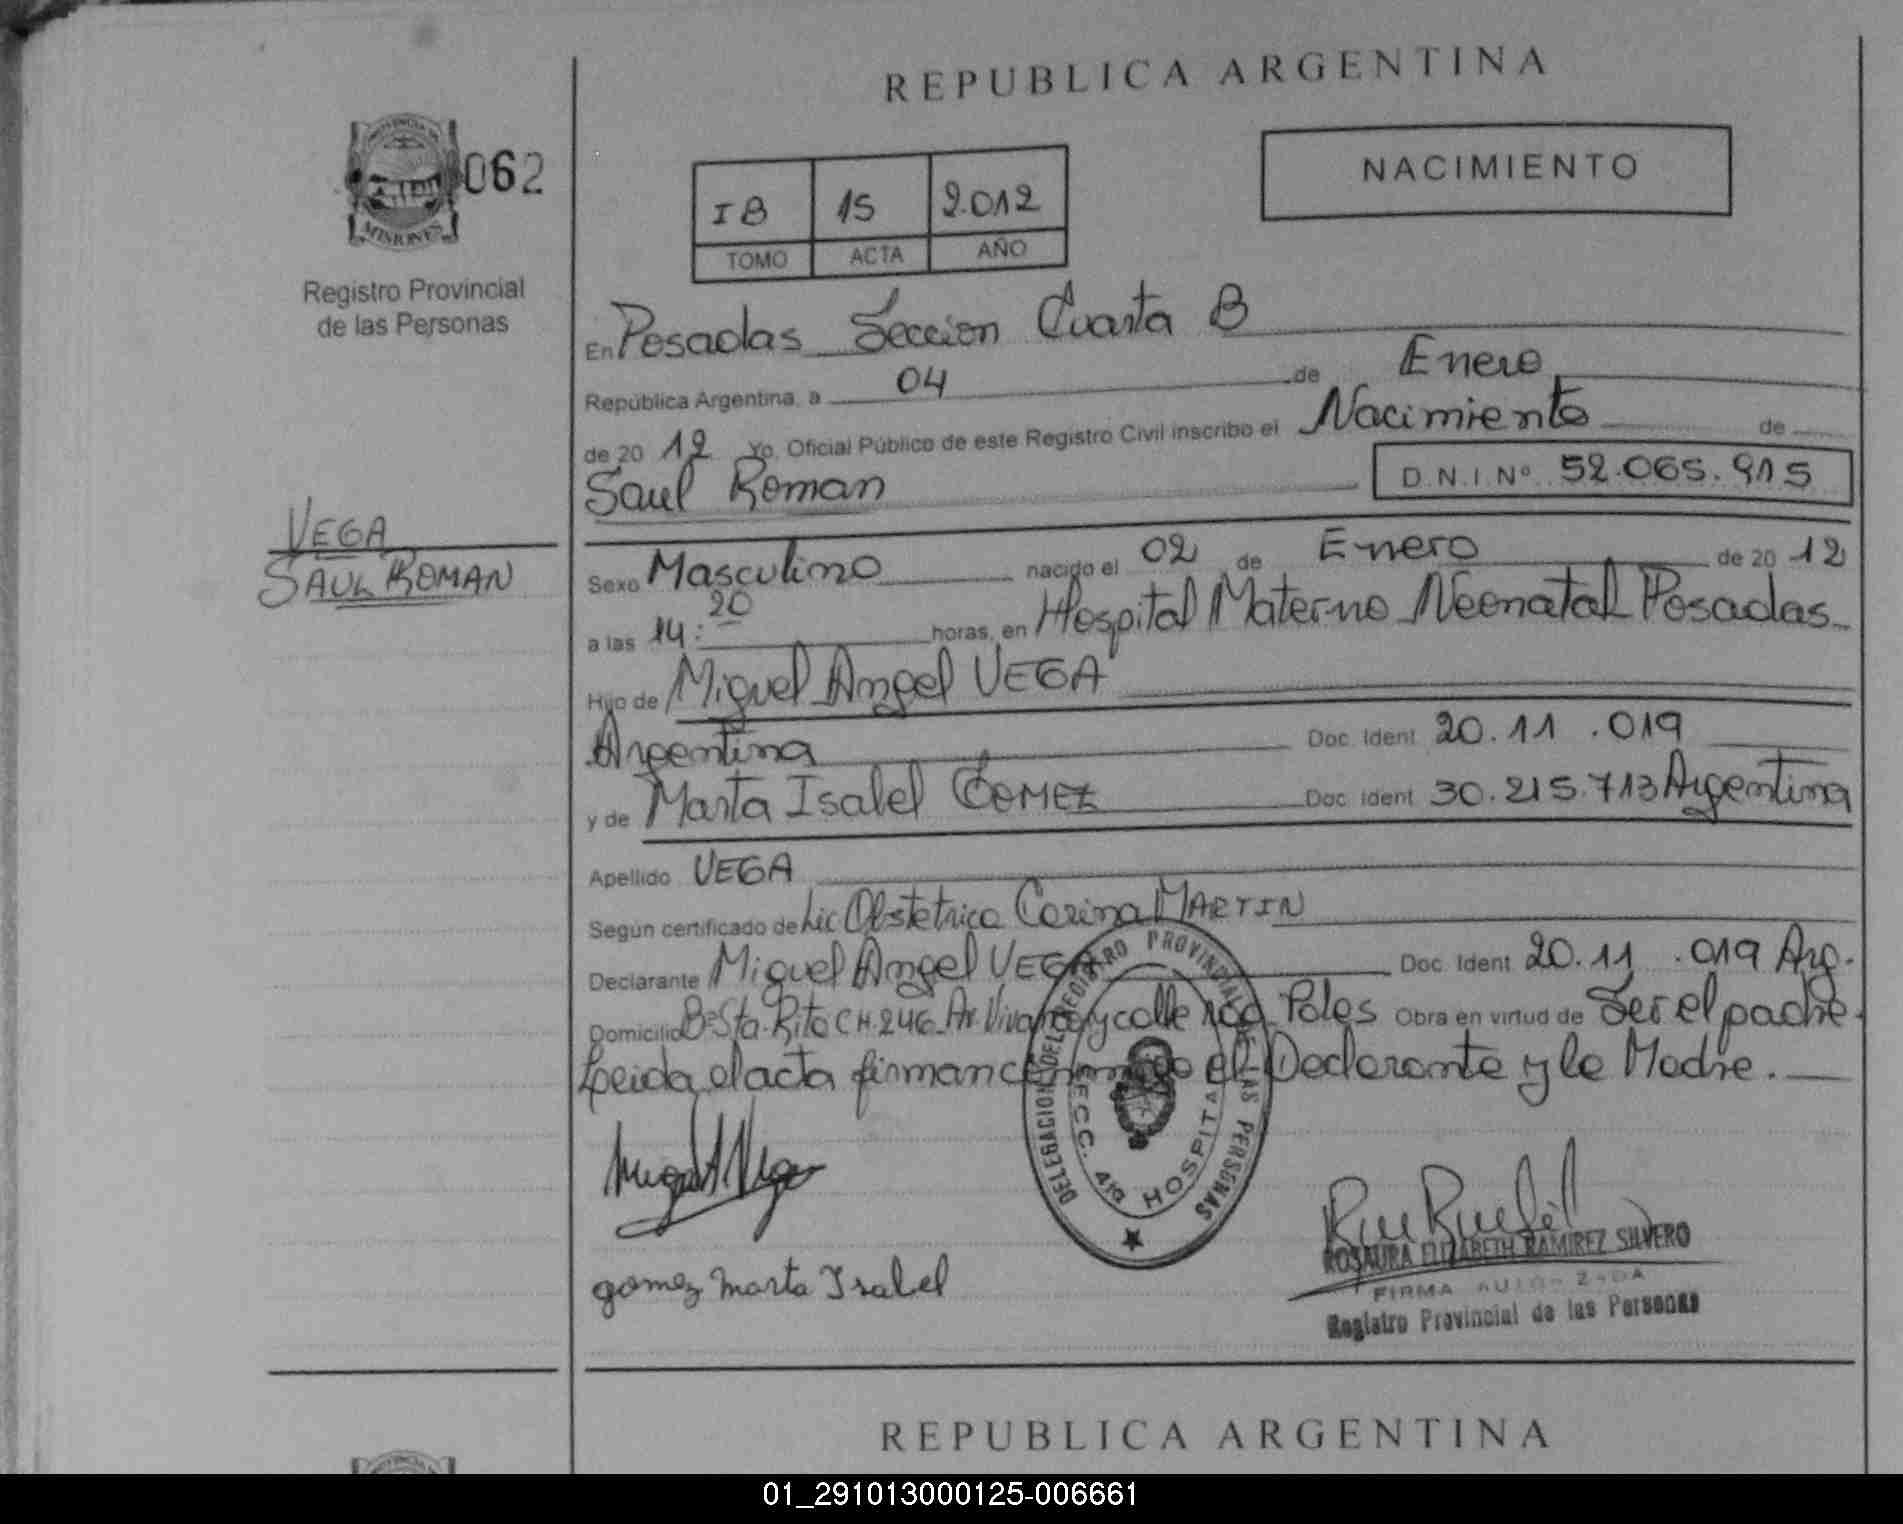 REPUBLICA ARGENTINA
062
MISIONES
Registro Provincial
de las Personas
NACIMIENTO
I B 15 2.012
TOMO ACTA AÑO
En Posadas Seccion Cuarta B
República Argentina, a 04 de Enero
de 20 12 Yo, Oficial Público de este Registro Civil inscribo el Nacimiento de
Saul Roman D.N.I. Nº 52.065.915
VEGA
SAUL ROMAN
Sexo Masculino nacido el 02 de Enero de 20 12
a las 14:20 horas, en Hospital Materno Neonatal Posadas
Hijo de Miguel Angel VEGA
Argentina Doc. Ident. 20.11 .019
y de Marta Isabel GOMEZ Doc. Ident. 30.215.713 Argentina
Apellido VEGA
Según certificado de Lic Obstetrica Corina MARTIN
Declarante Miguel Angel VEGA Doc. Ident. 20.11 .019 Arg.
Domicilio Bº Sta. Rita CH. 246 Av. y calle Obra en virtud de Ser el padre.
Leida el acta firman el Declarante y la Madre.
DELEGACION DEL REGISTRO PROVINCIAL DE LAS PERSONAS
SECC. 4ta HOSPITAL
gomez marta Isabel
ROSAURA ELIZABETH RAMIREZ SILVERO
FIRMA AUTORIZADA
Registro Provincial de las Personas
REPUBLICA ARGENTINA
01_291013000125-006661